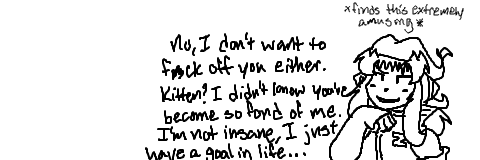 *finds this extremely
amusing*
No, I don't want to
fock off you either.
Kitten? I didn't know you've
become so fond of me.
I'm not insane, I just
have a goal in life...